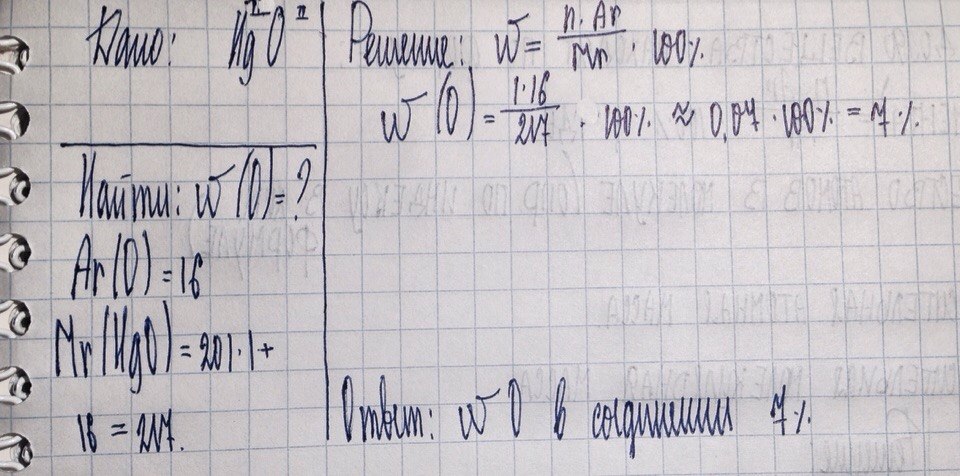 Дано: Hg^II O^II
Найти: w(O)=?
Ar(O)=16
Mr(HgO)=201·1+
16=217.
Решение: w = n·Ar / Mr · 100%
w(O) = 1·16 / 217 · 100% ≈ 0,07 · 100% = 7%.
Ответ: w O в соединении 7%